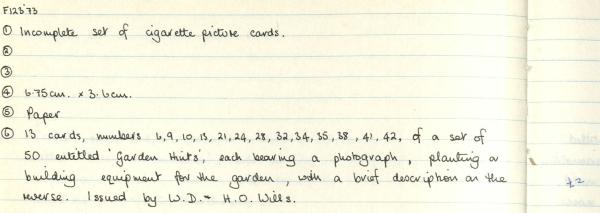 F123'73
① Incomplete set of cigarette picture cards.
②
③
④ 6.75cm. x 3.6cm.
⑤ Paper
⑥ 13 cards, numbers 6, 9, 10, 13, 21, 24, 28, 32, 34, 35, 38, 41, 42, of a set of
50 entitled 'Garden Hints', each bearing a photograph, planting or
building equipment for the garden, with a brief description on the
reverse. Issued by W.D. + H.O. Wills.
£2